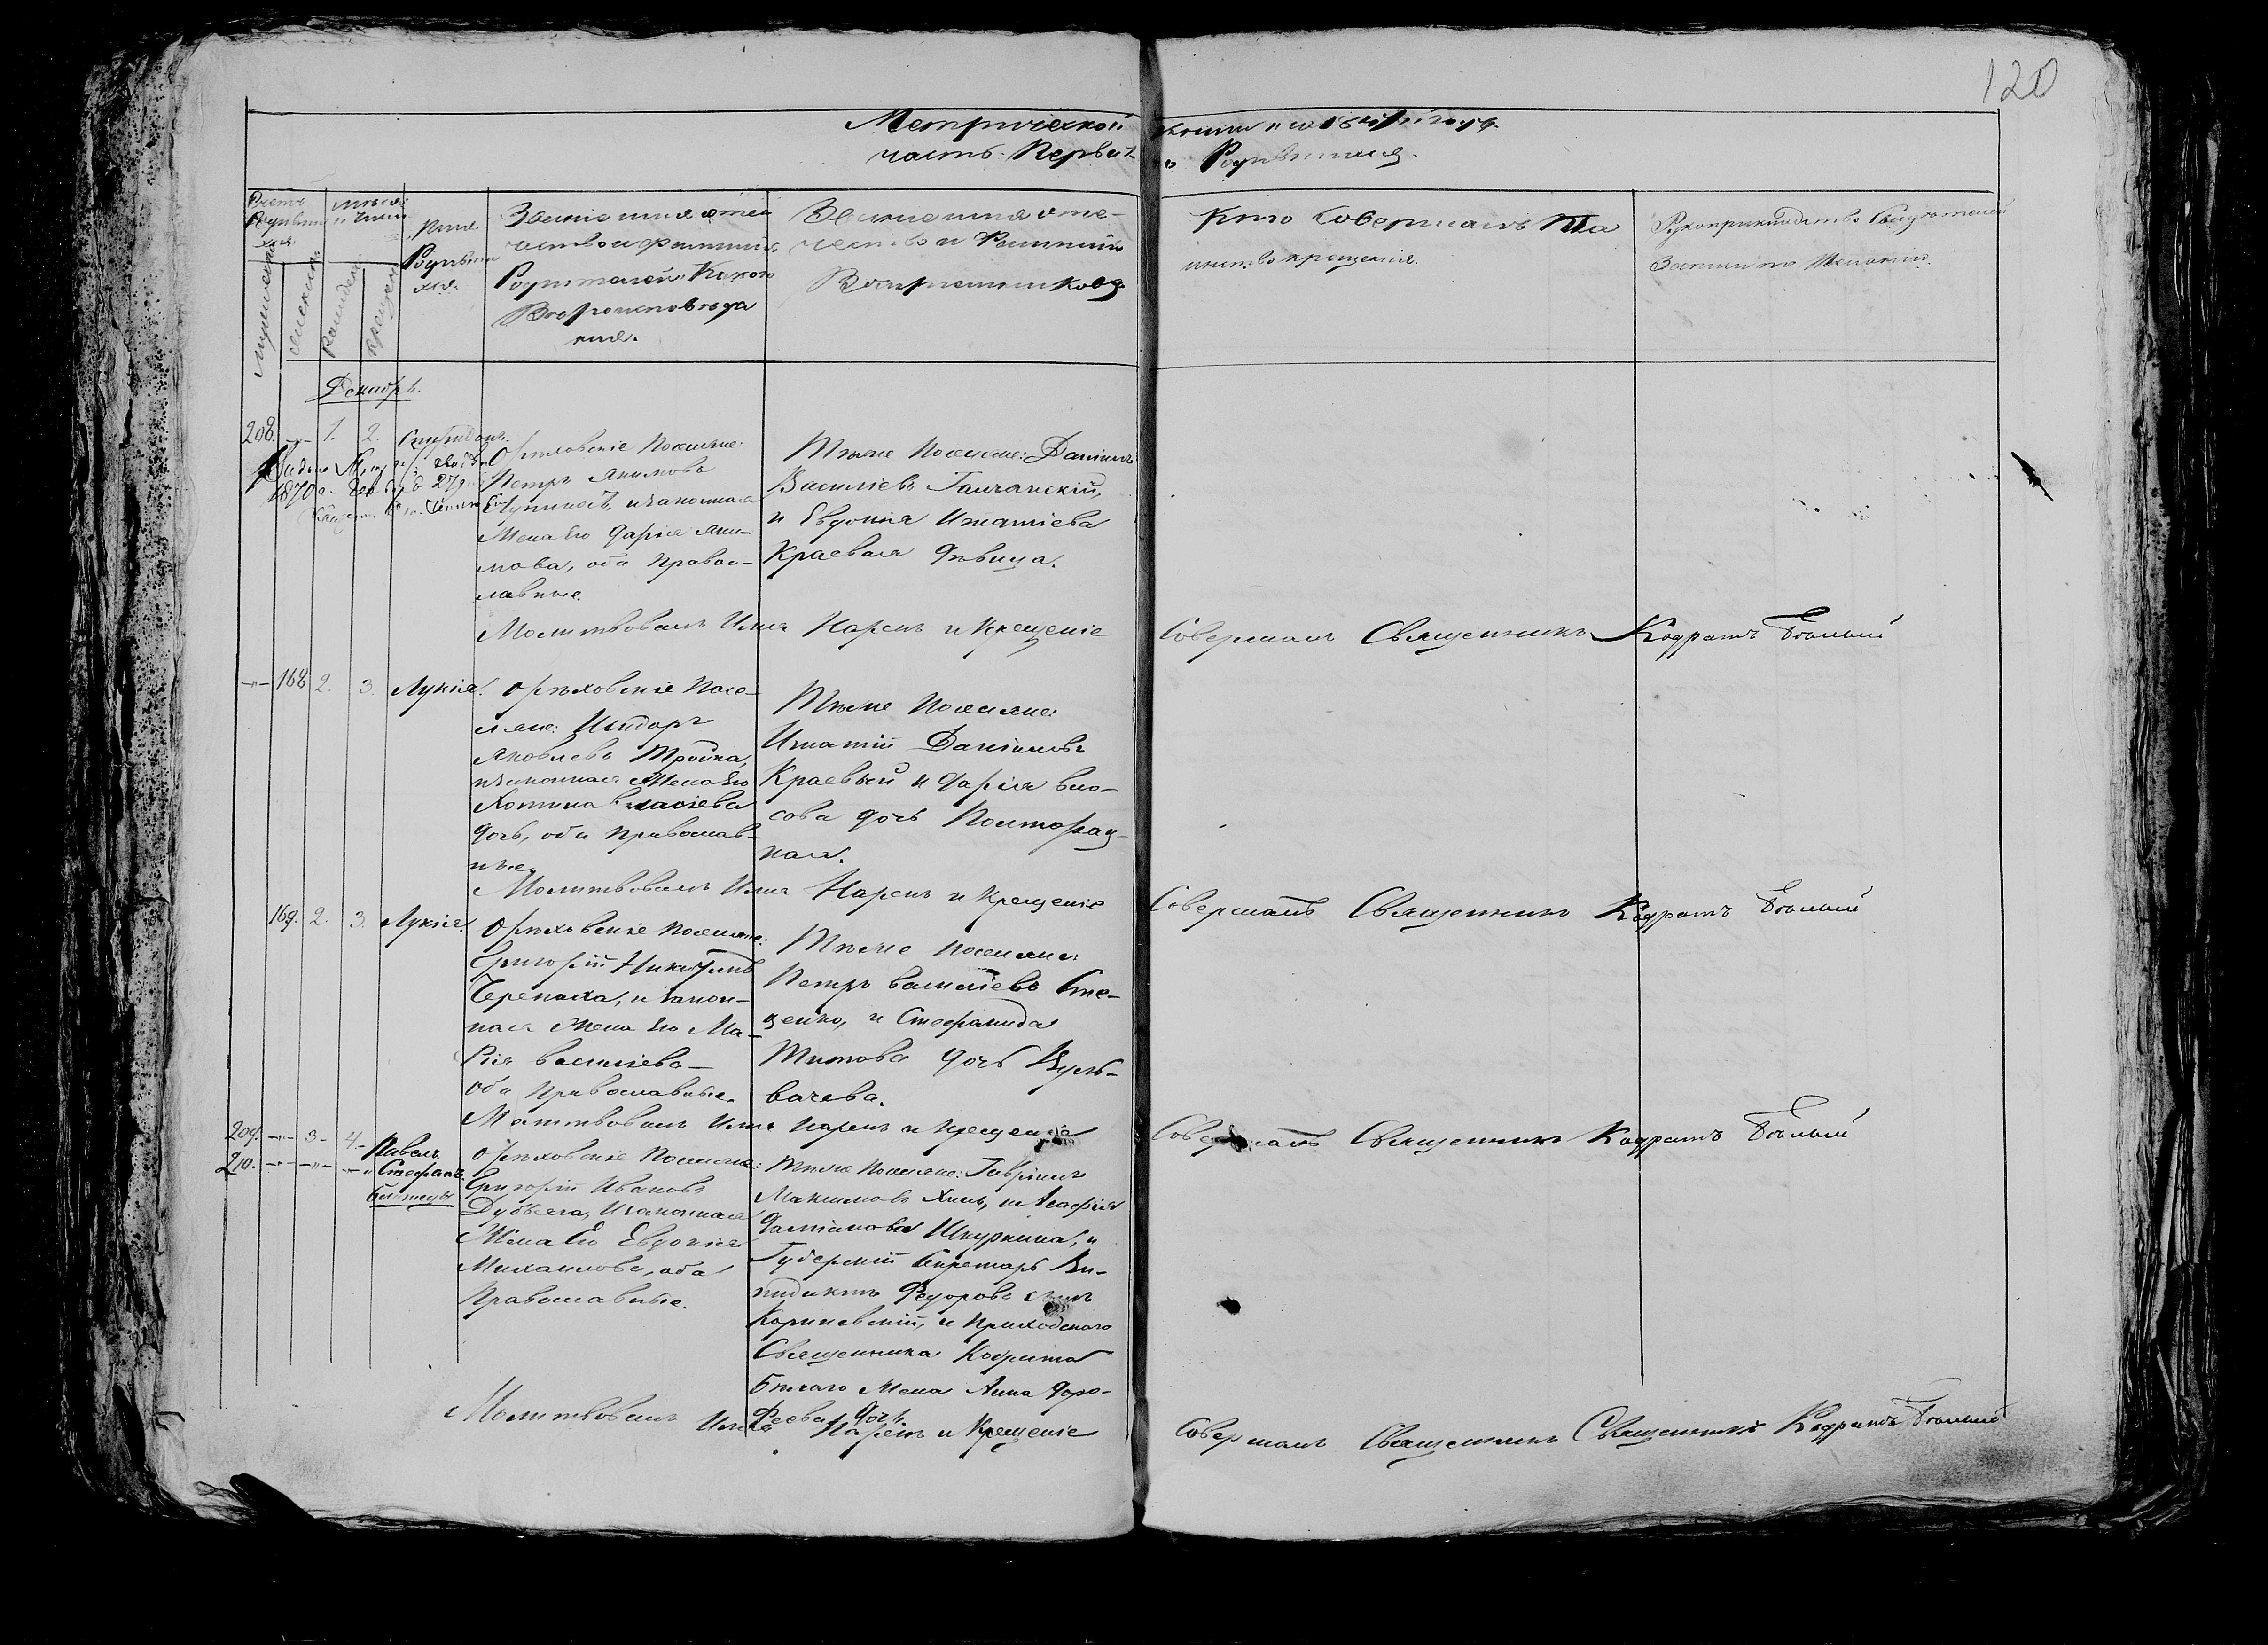 120
Метрической
часть: Первая
о Родившихся.
Счетъ
Родивших
ся.
мужеска
женска
Месяцъ
и Число
Рожденія
крещенія
Имя
Родивши
хся.
Званіе имя отче
ство и фамилия
Родителей и Какого
Вероисповеда
ния.
Званіе имя отче-
чество и Фамилия
Воспріемниковъ
Кто Совершалъ Та
инство крещенія.
Рукоприкладство Свидетелей
Записи по Желанию.
Декабрь.
208. -"- 1. 2. Спиридонъ.
Ореховскіе Поселяне:
Петръ Якимовъ
и законная
Жена Его Дарія Яки-
мова, оба Правос-
лавные.
Тъже Поселяне: Даніилъ
Василіевъ Галчанскій,
и Евдокия Игнатіева
Краевая Девица.
1870 27
Молитвовалъ Имя Нарекъ и Крещеніе
Совершалъ Священникъ Кодратъ Белый
-"- 168 2. 3. Лукія.
Ореховскіе Посе-
ляне: Исидоръ
Яковлевъ Тройна,
и законная Жена Его
Хотина Власіева
дочь, оба Православ-
ные.
Тъже Поселяне
Игнатій Даніиловъ
Краевый и Дарія Вла-
сова дочь Полторац-
кая.
Молитвовалъ Имя Нарекъ и Крещеніе
Совершалъ Священникъ Кодратъ Белый
169. 2. 3. Лукія.
Ореховскіе Поселяне:
Григорій Никитинъ
Черепаха, и закон-
ная Жена Его Ма-
рія Василіева-
оба Православные.
Тъже Поселяне
Петръ Василіевъ Сте-
ценко, и Стефанида
Титова дочь Куль-
бачева.
Молитвовалъ Имя Нарекъ и Крещеніе
Совершалъ Священникъ Кодратъ Белый
209. -"- 3- 4- Павелъ.
210. -"- -"- -"- Стефанъ.
близнецы
Ореховскіе Поселяне:
Григорій Ивановъ
Дубъяга, И законная
Жена Его Евдокія
Михаилова, оба
Православные.
Тъже Поселяне: Гавріилъ
Максимовъ Хиль, и Агафія
Даміанова Шкуркина, и
Губерскій Секретарь Ве-
недиктъ Федоровъ сынъ
Кориневскій, и Приходскаго
Священника Кодрата
Белаго Жена Анна Доро-
феева дочь.
Молитвовалъ Имя Нарекъ и Крещеніе
Совершалъ Священникъ Священникъ Кодратъ Белый